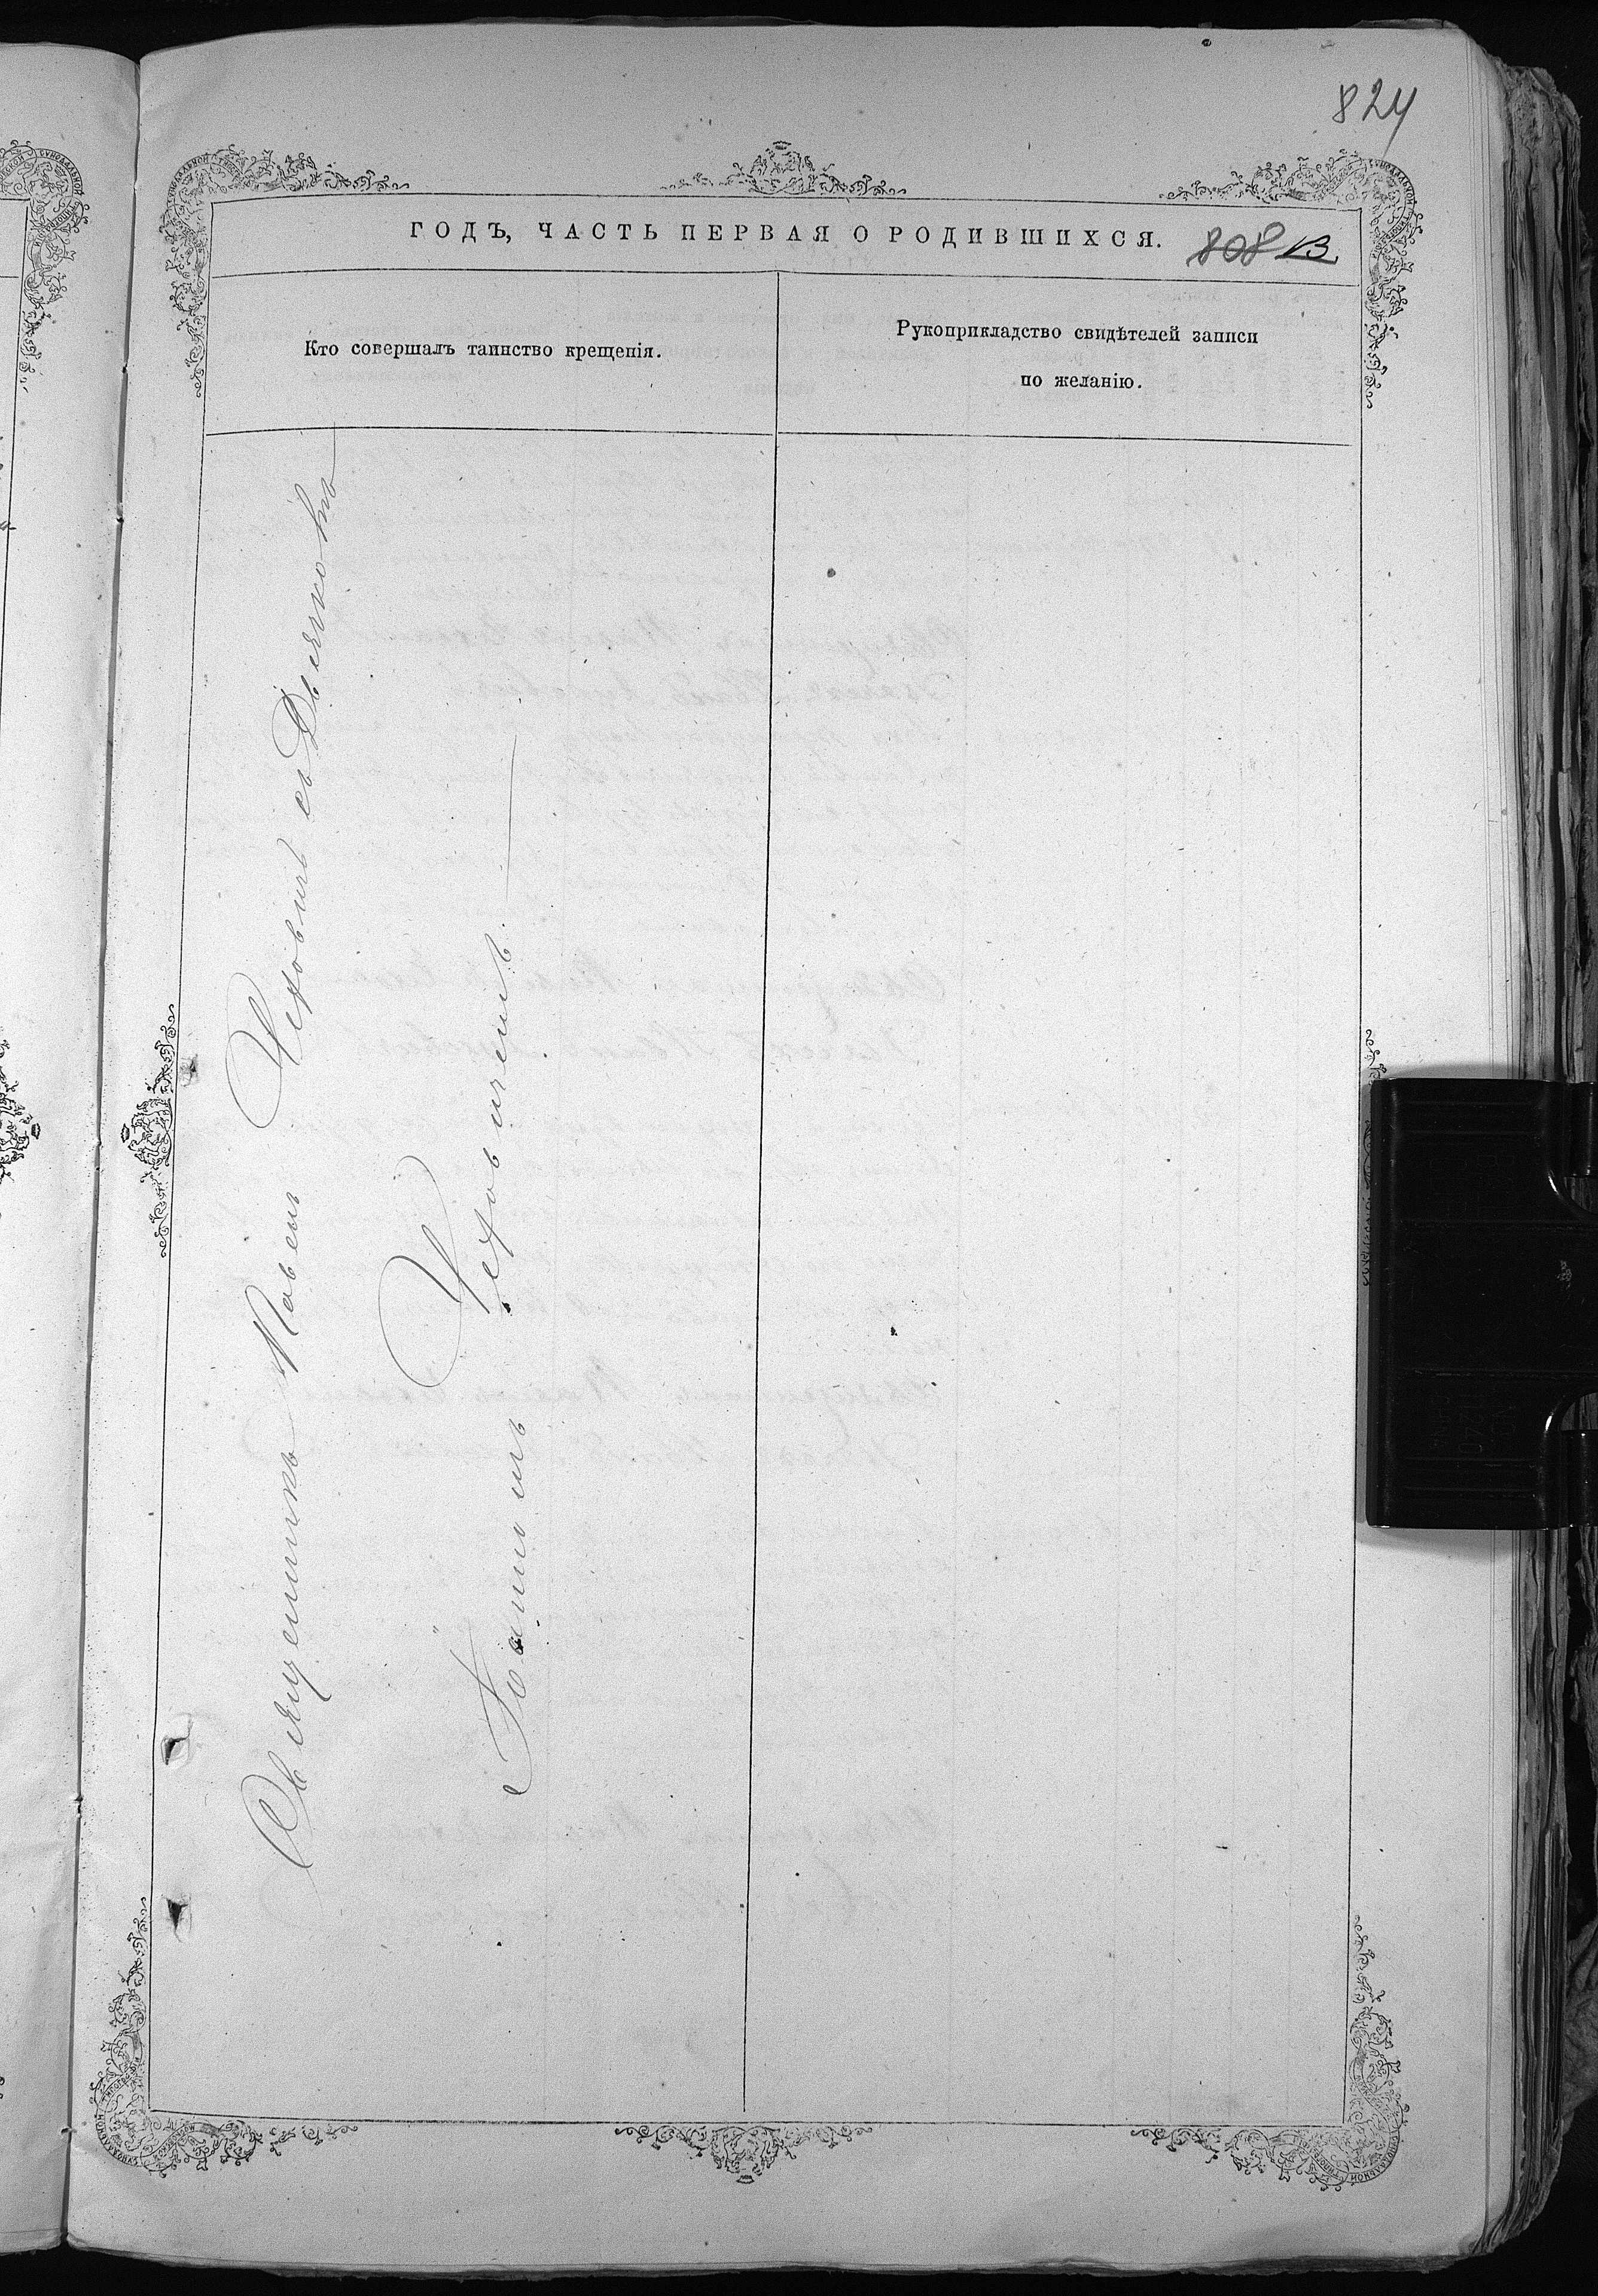 824
ГОДЪ, ЧАСТЬ ПЕРВАЯ О РОДИВШИХСЯ.
808 В.
Кто совершалъ таинство крещенія.
Рукоприкладство свидѣтелей записи
по желанію.
Священникъ Павелъ Чеховичъ съ Дьячкомъ
Іоанномъ Чеховичемъ.